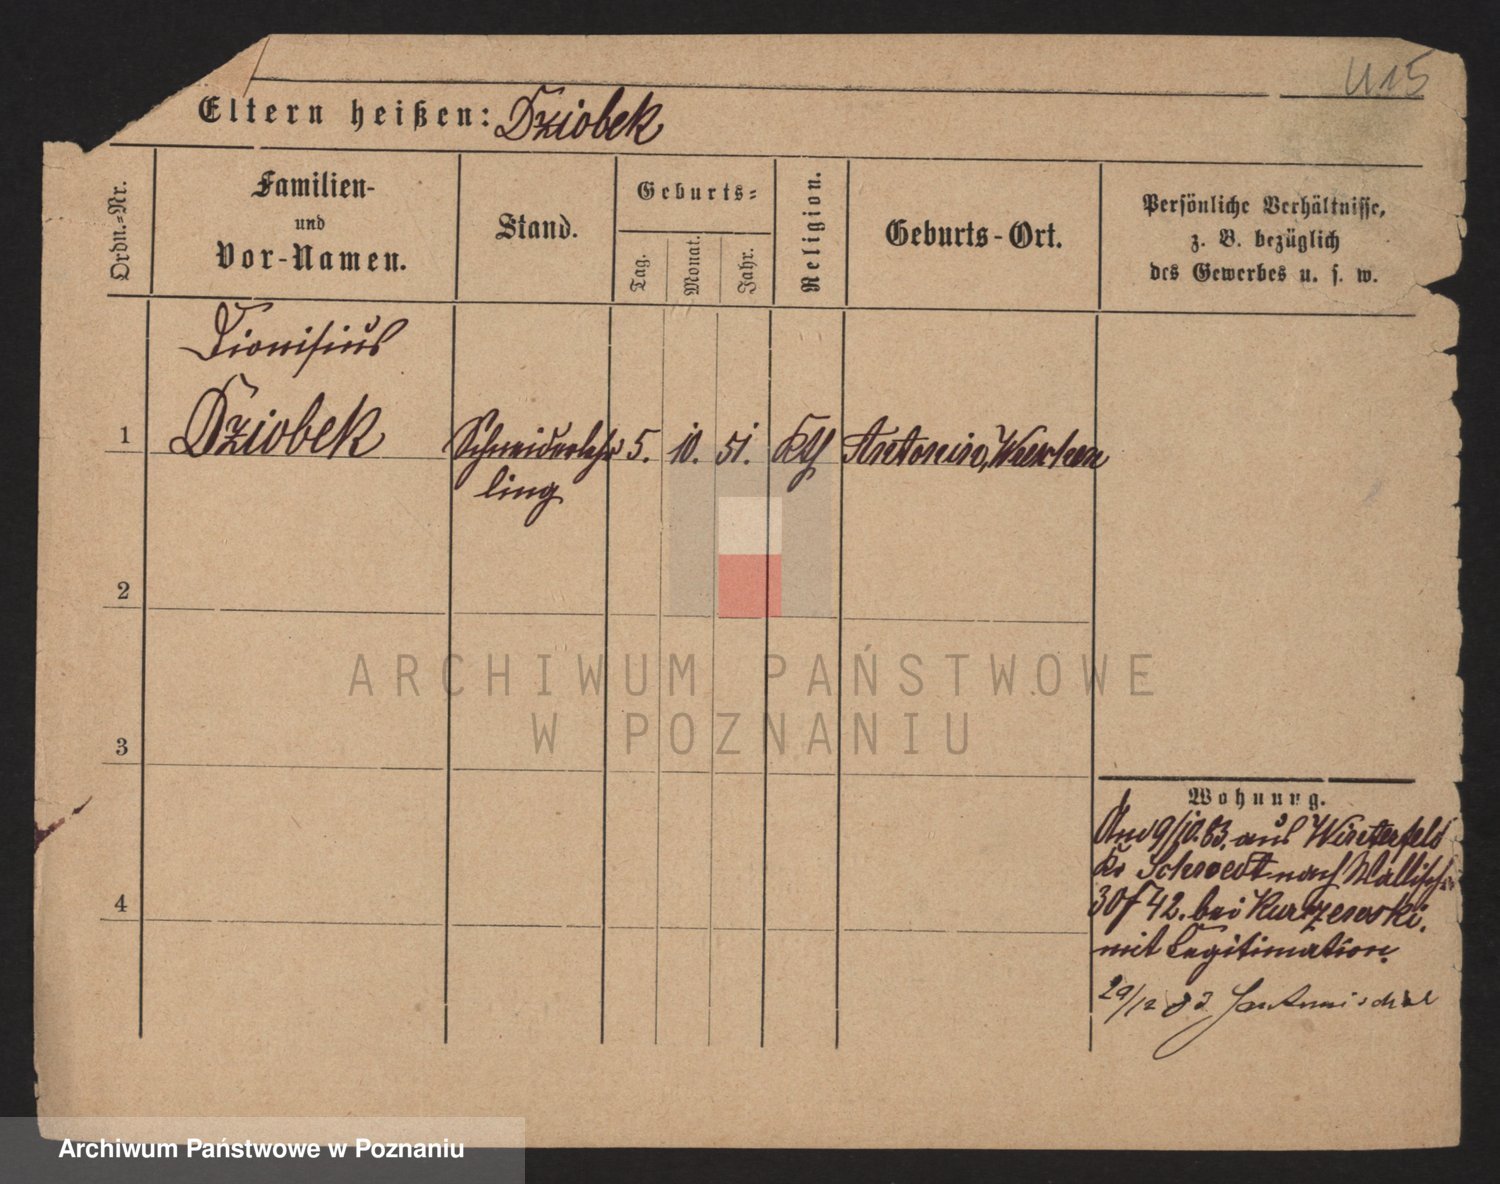 U15
Eltern heißen: Dziobek
Ordn.-Nr.
Familien-
und
Vor-Namen.
Stand.
Geburts-
Tag.
Monat.
Jahr.
Religion.
Geburts-Ort.
Persönliche Verhältnisse,
z. B. bezüglich
des Gewerbes u. s. w.
Dionisius
1 Dziobek Schneiderlehr 5. 10. 51. Kth Antonin,
ling
2
3
4
Wohnung.
Am 9/10. 83. aus Winterfeld
Kr nach Wallisch
42. bei
mit Legitimation.
29/12 83
ARCHIWUM PAŃSTWOWE
W POZNANIU
Archiwum Państwowe w Poznaniu